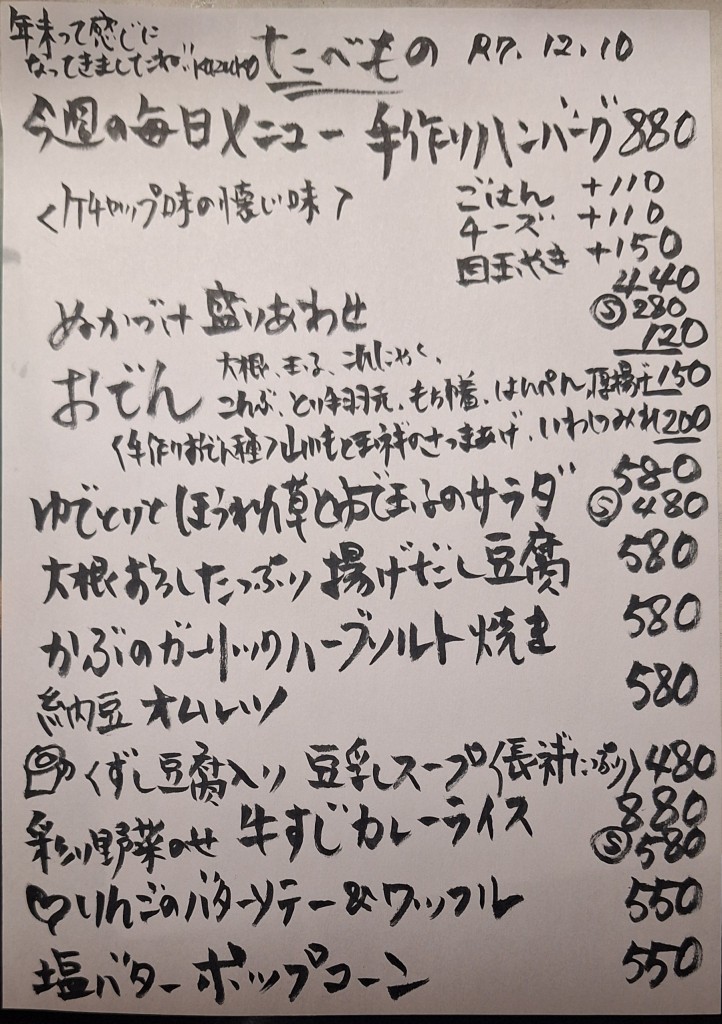 年末って感じに
なってきましたね!! Kazuko たべもの R7.12.10
今週の毎日メニュー 手作りハンバーグ 880
<ケチャップ味の懐しい味>
ごはん +110
チーズ +110
目玉やき +150
ぬかづけ 盛りあわせ 440
Ⓢ280
おでん 大根、玉子、こんにゃく、 120
こんぶ、とり手羽元、もち巾着、はんぺん、厚揚げ 150
<手作りおでん種>山いもと玉ねぎのさつまあげ、いわしつみれ 200
ゆでとりとほうれん草とゆで玉子のサラダ 580
Ⓢ480
大根おろしたっぷり 揚げだし豆腐 580
かぶのガーリックハーブソルト焼き 580
納豆オムレツ 580
くずし豆腐入り 豆乳スープ<長ネギたっぷり> 480
彩り野菜のせ 牛すじカレーライス 880
Ⓢ580
♡りんごのバターソテー&ワッフル 550
塩バターポップコーン 550